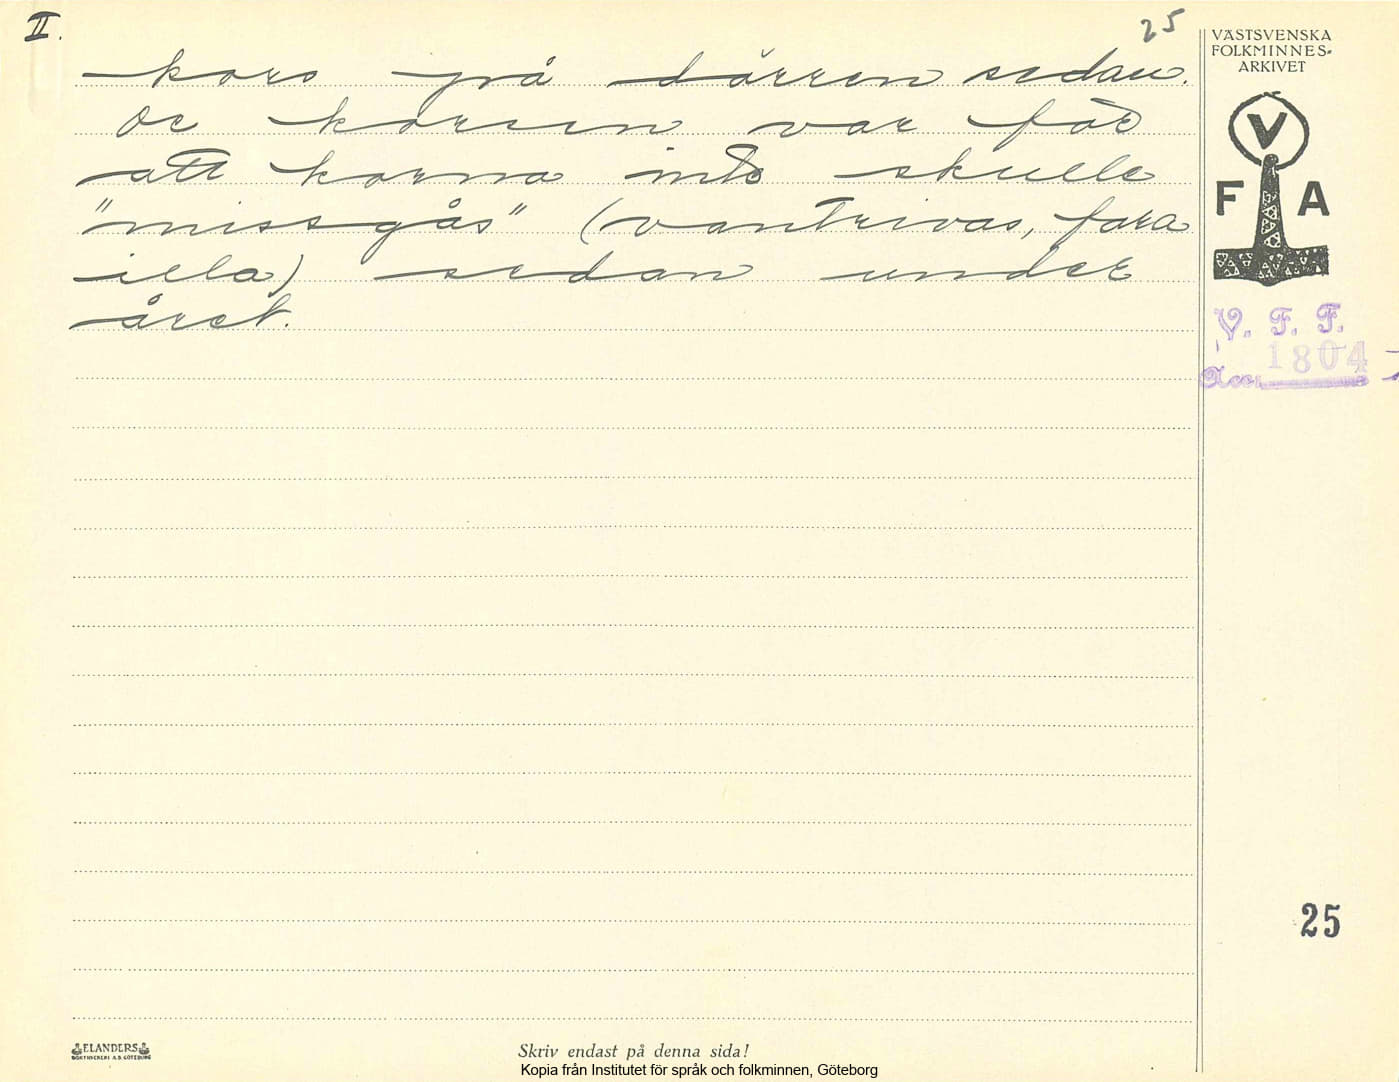 II.
25
kors på dörren sedan.
De korsen var för
att korna inte skulle
"missgås" (vantrivas, fara
illa) sedan under
året.
VÄSTSVENSKA
FOLKMINNES-
ARKIVET
V
F A
V. F. F.
1804
25
ELANDERS
BOKTRYCKERI A.B. GÖTEBORG
Skriv endast på denna sida!
Kopia från Institutet för språk och folkminnen, Göteborg